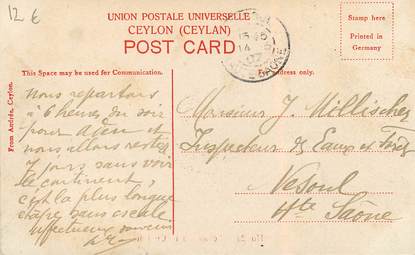 12 €
UNION POSTALE UNIVERSELLE
CEYLON (CEYLAN)
POST CARD
Stamp here
Printed in
Germany
This Space may be used for Communication.
Address only.
From Andrée, Ceylon.
Nous repartons
à 6 heures du soir
pour Aden et
nous allons rester
7 jours sans voir
le continent,
c'est la plus longue
étape sans escale
affectueux souvenir
Monsieur J. Millischer
Inspecteur des Eaux et Forêts
Vesoul
Hte Saône